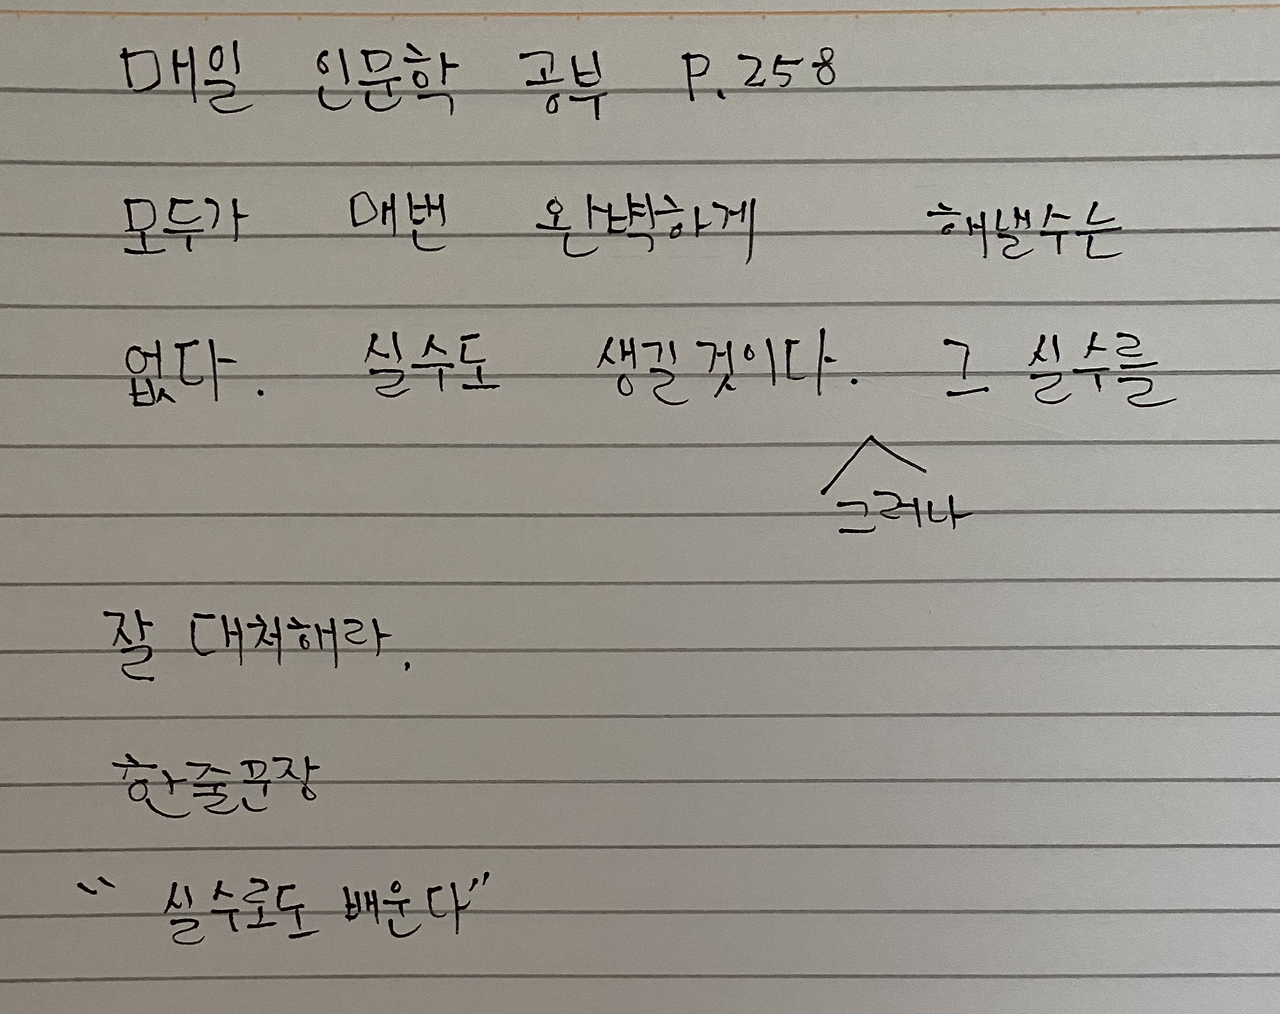 매일 인문학 공부 P.258
모두가 매번 완벽하게 해낼수는
없다. 실수도 생길 것이다. 그 실수를
그러나
잘 대처해라.
한줄문장
“ 실수로도 배운다”